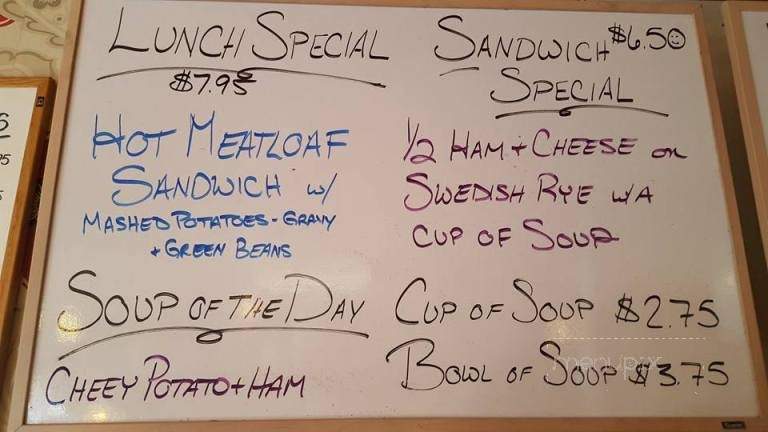 LUNCH SPECIAL
$7.95
HOT MEATLOAF
SANDWICH w/
MASHED POTATOES - GRAVY
+ GREEN BEANS
SANDWICH $6.50
SPECIAL
1/2 HAM + CHEESE on
SWEDISH RYE w/A
CUP OF SOUP
SOUP OF THE DAY
CHEEY POTATO + HAM
CUP OF SOUP $2.75
BOWL OF SOUP $3.75
menupix